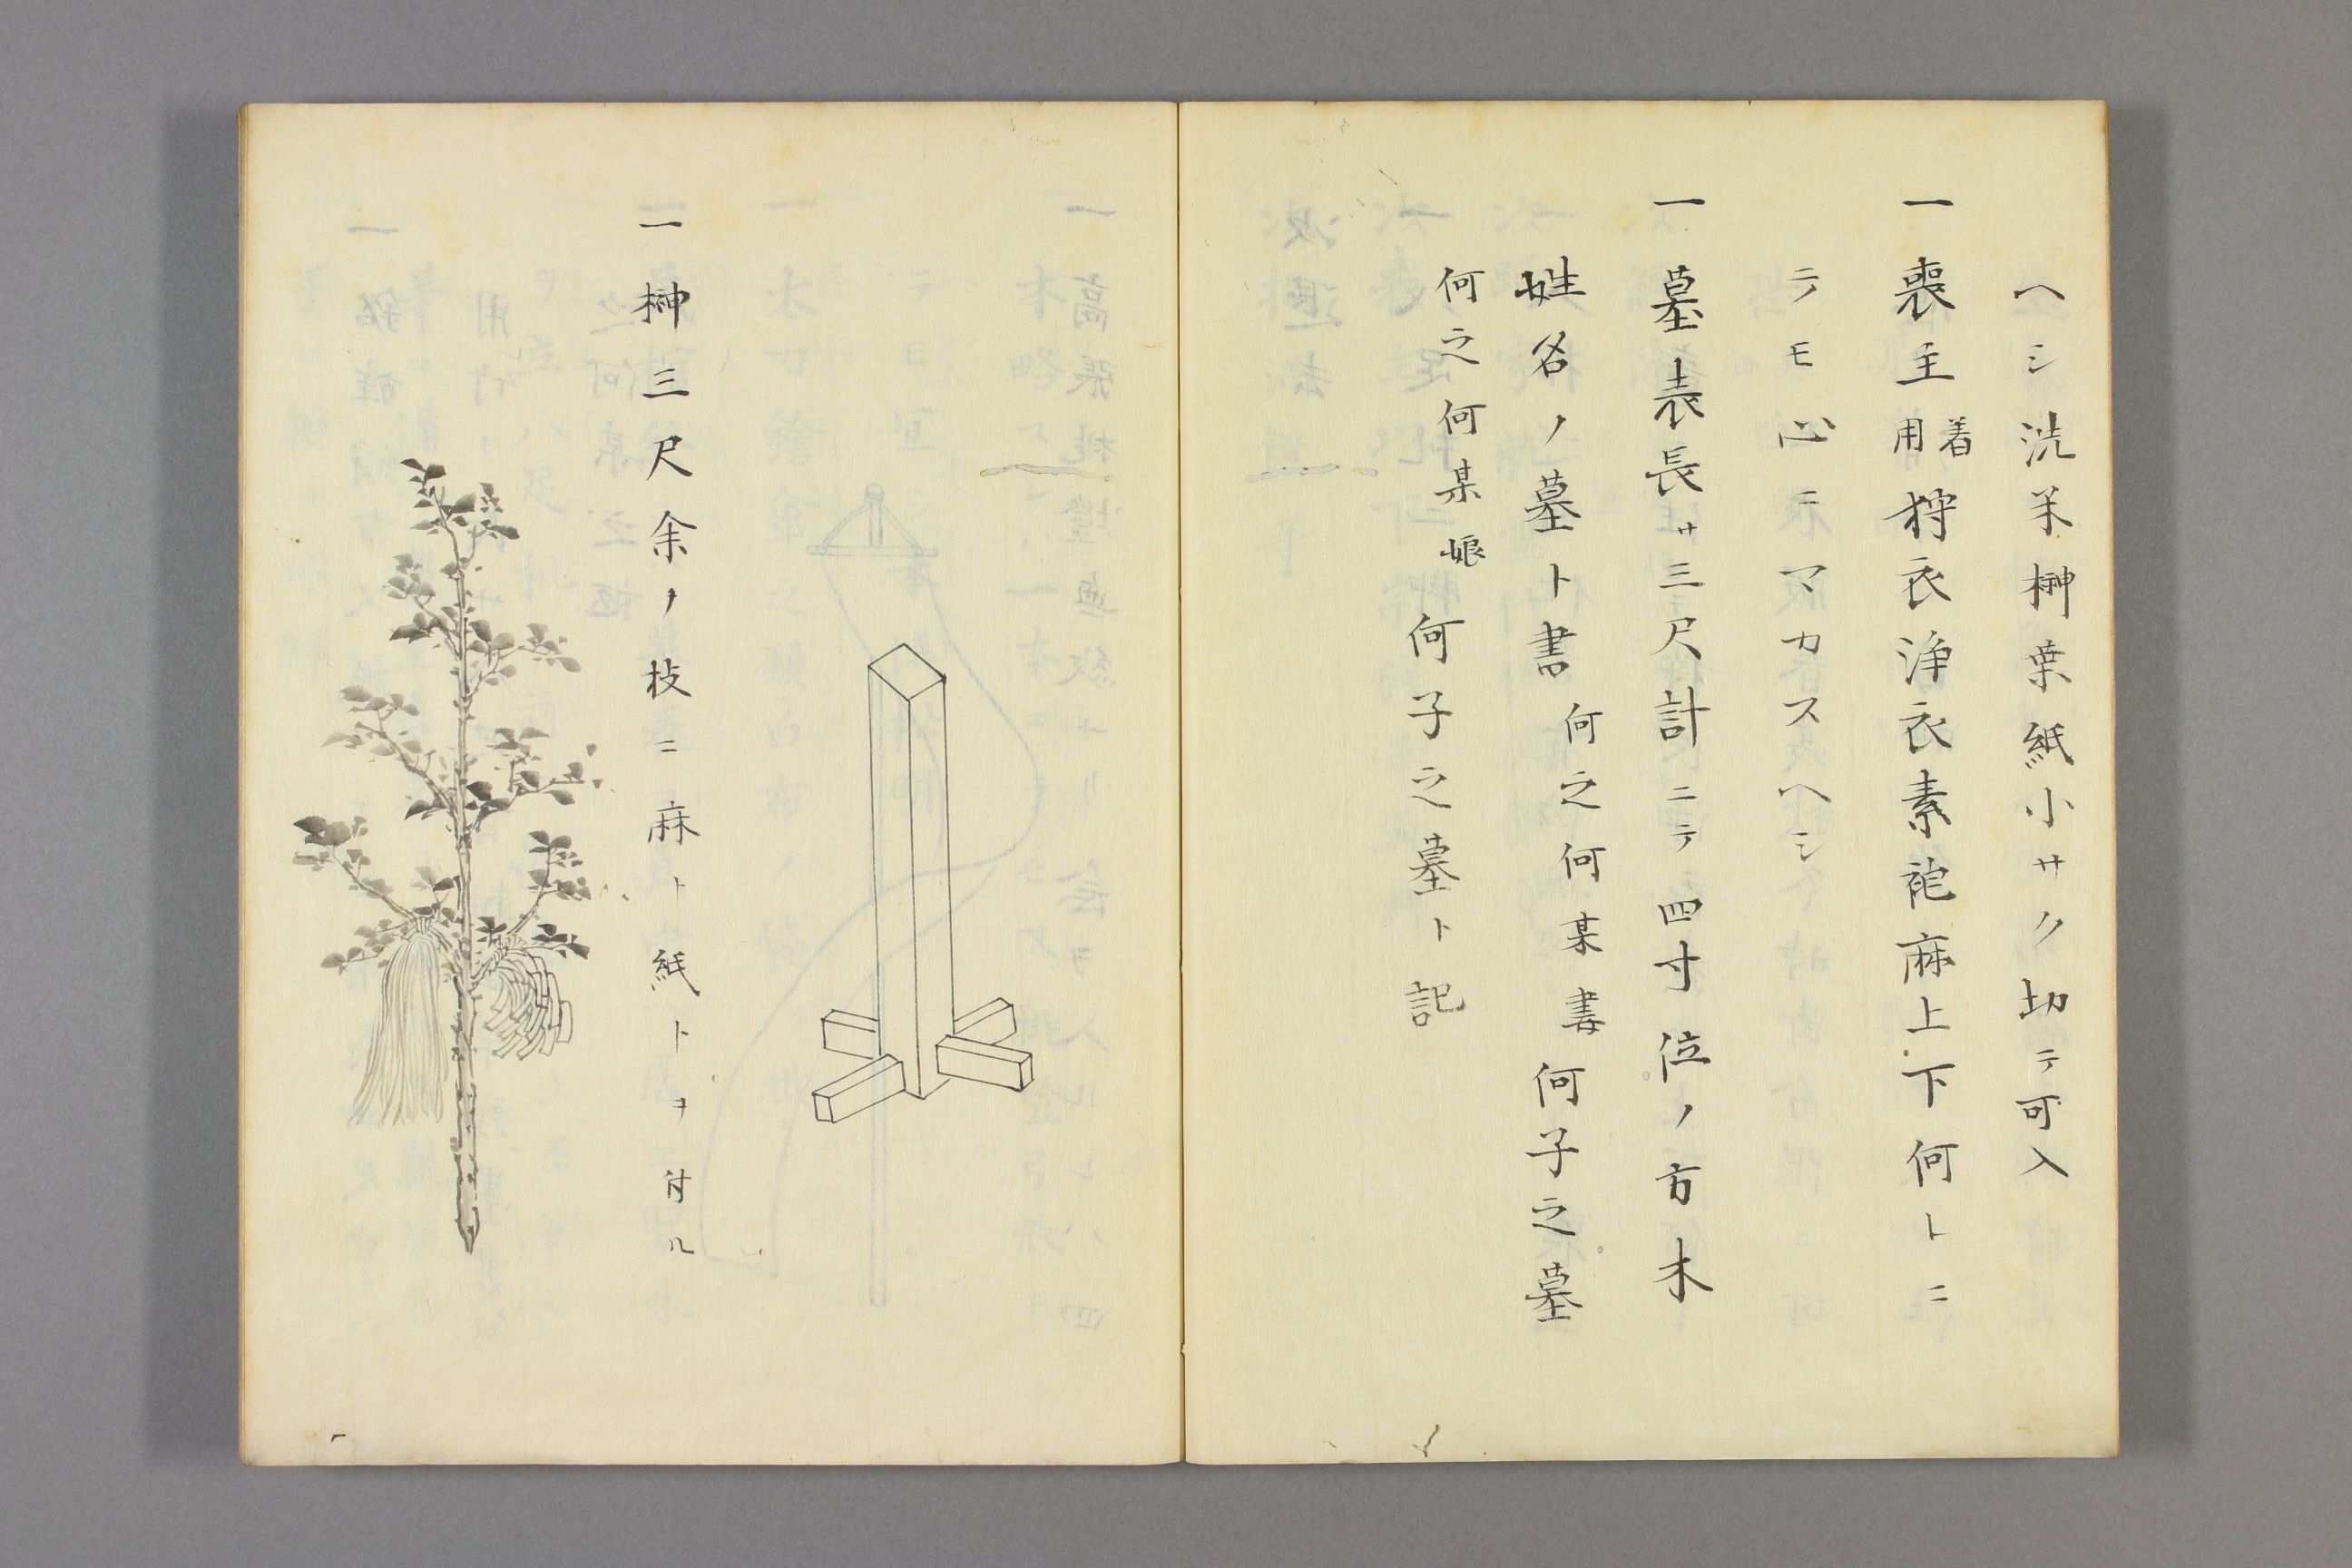 ヘシ洗米榊葉紙小サク切テ可入
一喪主着用狩衣浄衣素袍麻上下何トニ
テモ心ニマカスヘシ
一墓表長サ三尺計ニテ四寸位ノ方木
姓名ノ墓ト書何之何某妻何子之墓
何之何某娘何子之墓ト記
一榊三尺余ノ枝ニ麻ト紙トヲ付ル